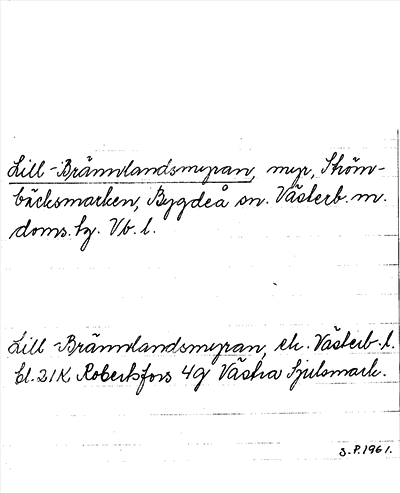 Lill-Brännlandsmyran, myr, Ström-
bäcksmarken, Bygdeå sn. Västerb. m.
doms. hg. Vb. l.
Lill-Brännlandsmyran, ek. Västerb. l.
bl. 21K Robertsfors 4g Västra Sjulsmark.
S.P. 1961.